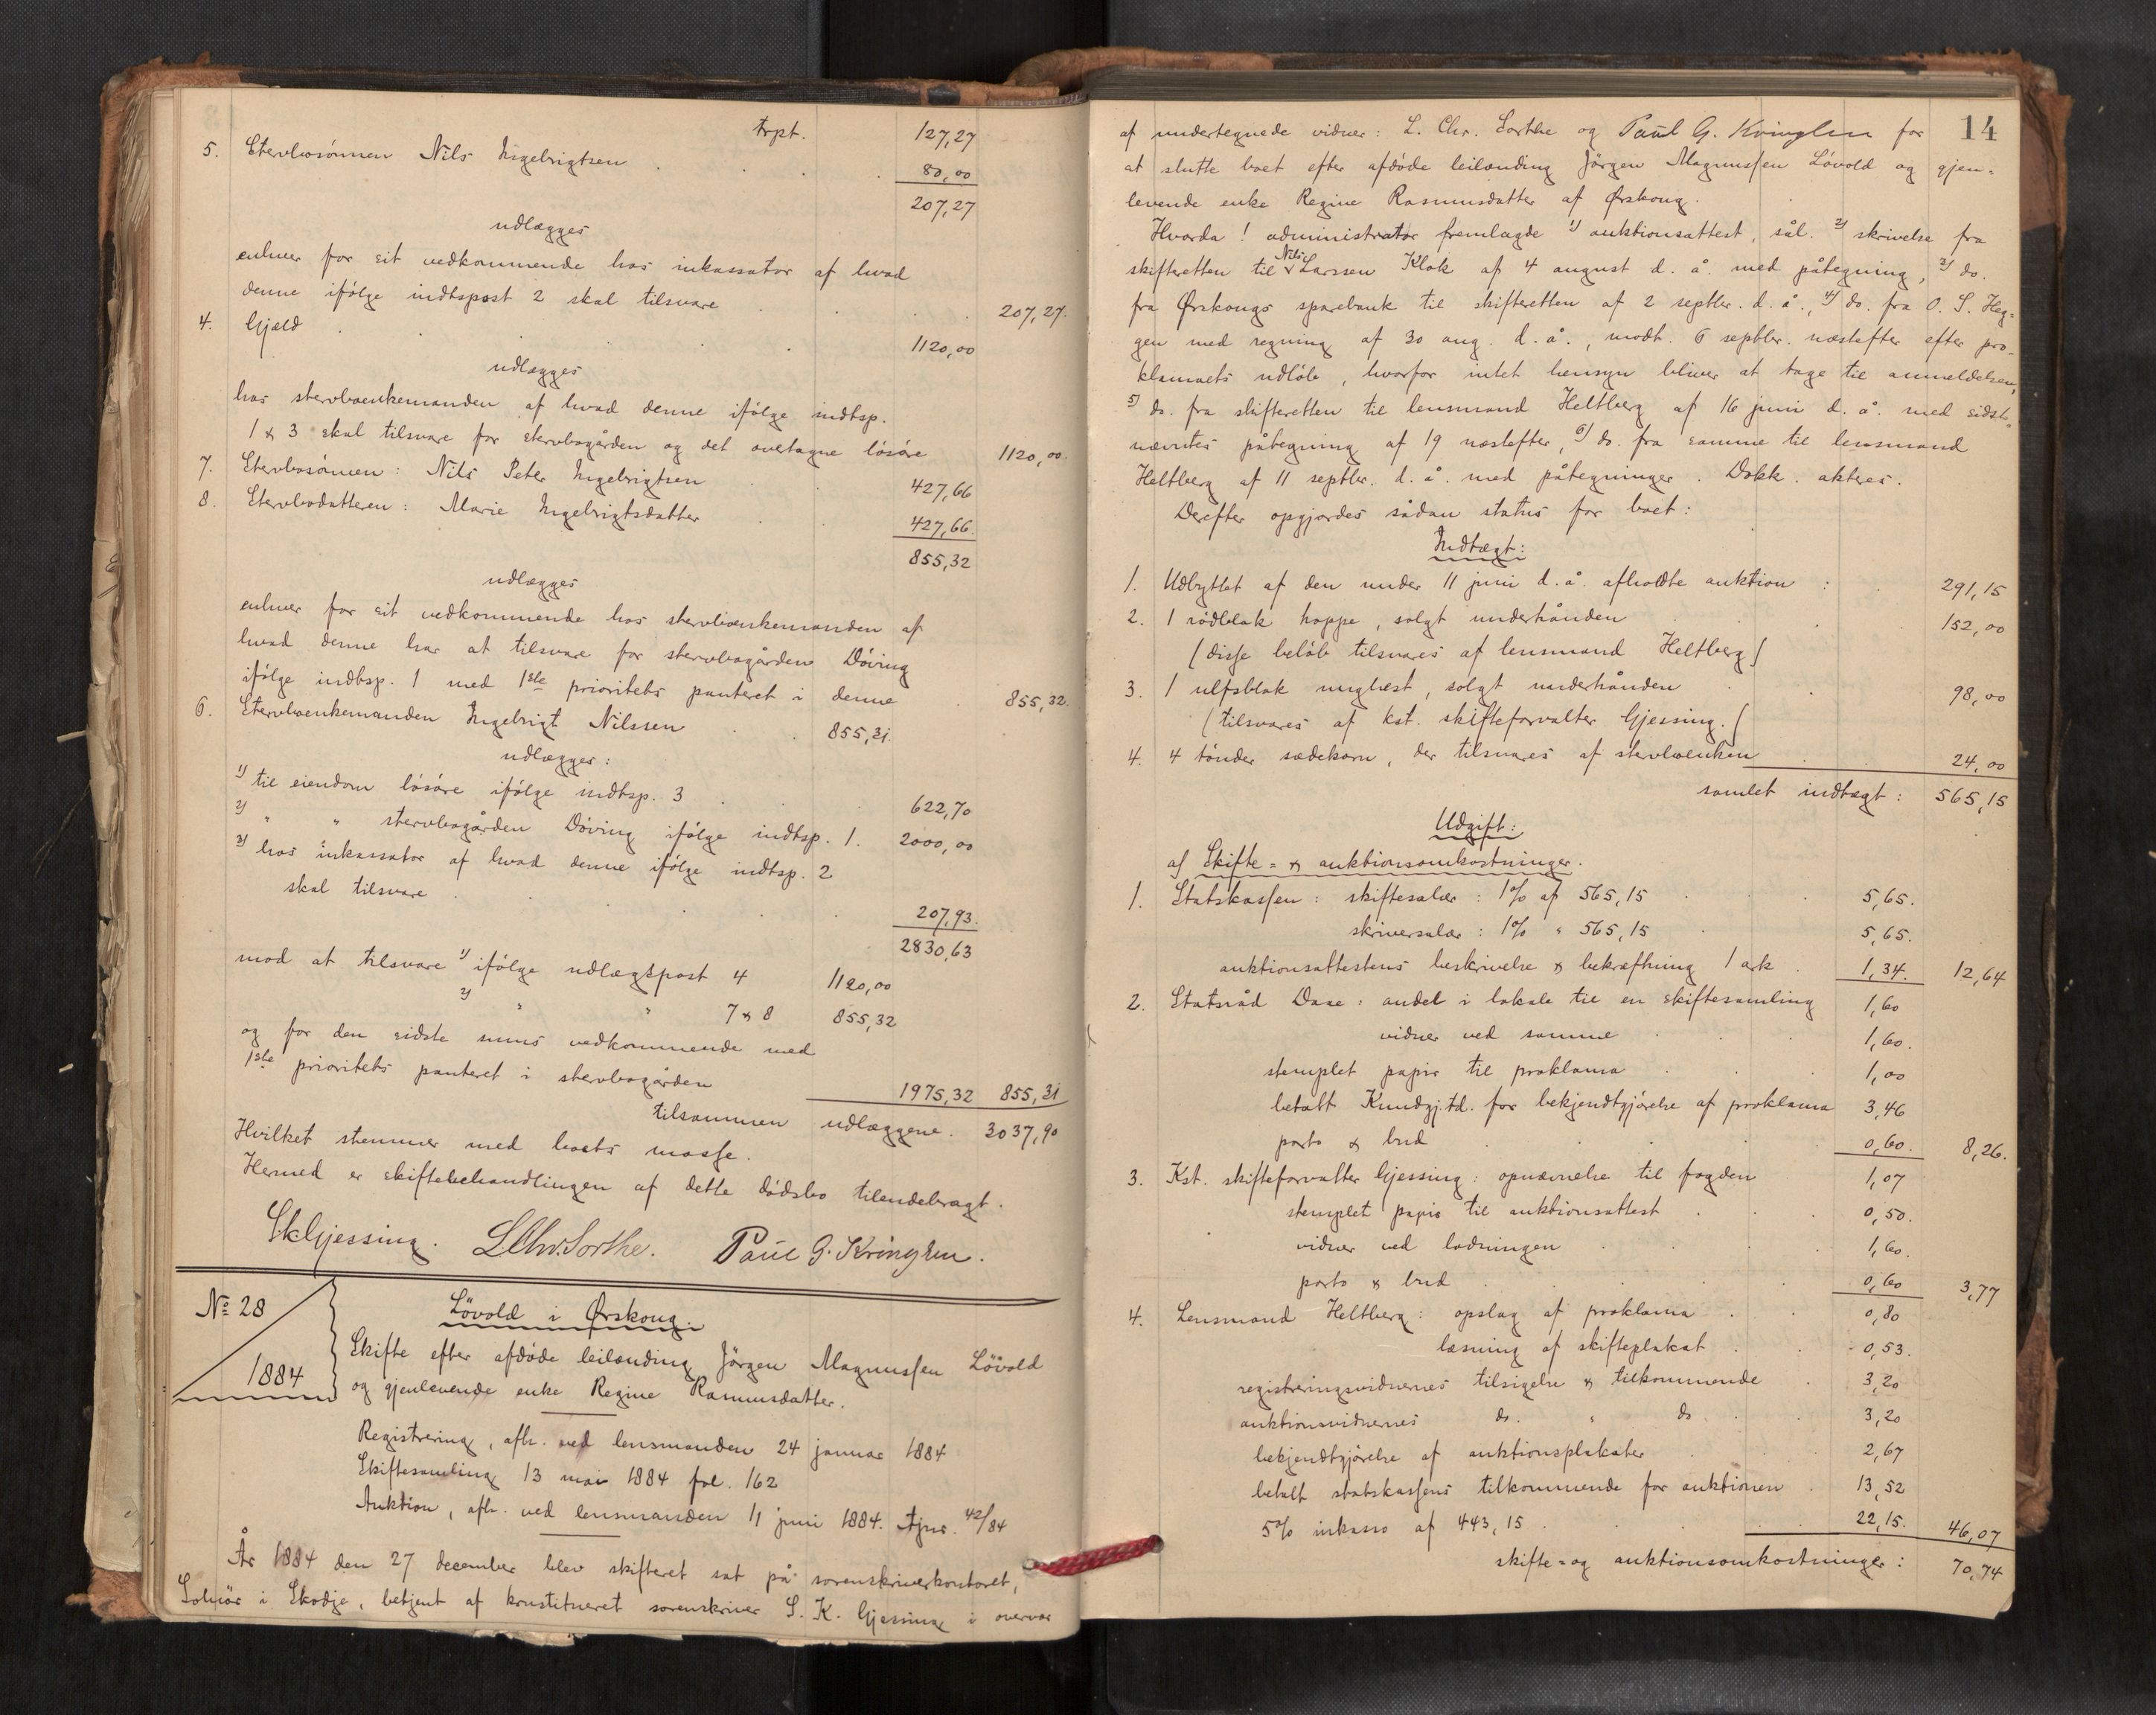 trpt. 127,27
5. Stervbosönnen Nils Ingebrigtsen . . . . 80,00
207,27
udlægges
enhver for sit vedkommende hos inkassator af hvad
denne ifölge indtspost 2 skal tilsvare . . . 207,27.
4. Gjæld . . . . 1120,00
udlægges
hos stervboenkemanden af hvad denne ifölge indtsp.
1 & 3 skal tilsvare for stervbogården og det overtagne lösöre 1120,00.
7. Stervbosönnen: Nils Peter Ingebrigtsen . . 427,66
8. Stervbodatteren: Marie Ingebrigtsdatter . . 427,66.
855,32
udlægges
enhver for sit vedkommende hos stervboenkemanden af
hvad denne har at tilsvare for stervbogården Döving
ifölge indtsp. 1 med 1ste prioritets panteret i denne . 855,32.
6. Stervboenkemanden Ingebrigt Nilssen . . 855,31.
udlægges:
1) til eiendom lösöre ifölge indtsp. 3 . . 622,70
2) " " stervbogården Döving ifölge indtsp. 1. 2000,00
3) hos inkassator af hvad denne ifölge indtsp. 2
skal tilsvare . . . . 207,93.
2830,63
mod at tilsvare 1) ifölge udlægspost 4 1120,00
2) " " 7 & 8 855,32
og for den sidste sums vedkommende med
1ste prioritets panteret i stervbogården 1975,32 855,31
tilsammen udlæggene. 3037,90
Hvilket stemmer med boets masse.
Hermed er skiftebehandlingen af dette dödsbo tilendebragt.
SKGjessing. LChr.Sorthe. Paul G. Kringlen.
No 28
1884
Lövold i Ørskoug.
Skifte efter afdöde leilænding Jörgen Magnussen Lövold
og gjenlevende enke Regine Rasmusdatter.
Registrering, afh. ved lensmanden 24 januar 1884
Skiftesamling 13 mai 1884 fol. 162
Auktion, afh. ved lensmanden 11 juni 1884. Ajour. 42/84
År 1884 den 27 december blev skifteret sat på sorenskriverkontoret,
Solnör i Skodje, betjent af konstitueret sorenskriver S. K. Gjessing i overvær
14
af undertegnede vidner: L. Chr. Sorthe og Paul G. Kringlen for
at slutte boet efter afdöde leilænding Jörgen Magnussen Lövold og gjen-
levende enke Regine Rasmusdatter af Ørskoug.
Hvorda! administrator fremlagde 1) auktionsattest, sål. 2) skrivelse fra
skifteretten til Nils Larssen Klok af 4 august d. å. med påtegning, 3) do.
fra Ørskougs sparebank til skifteretten af 2 septbr. d. å., 4) do. fra O. S. Heg-
gen med regning af 30 aug. d. å., modt. 6 septbr. næstefter efter pro-
klamaets udlöb, hvorfor intet hensyn bliver at tage til anmeldelsen,
5) do. fra skifteretten til lensmand Heltberg af 16 juni d. å. med sidst-
nævntes påtegning af 19 næstefter, 6) do. fra samme til lensmand
Heltberg af 11 septbr. d. å. med påtegninger. Dokk. akteres.
Derefter opgjordes sådan status for boet:
Indtægt:
1. Udbyttet af den under 11 juni d. å. afholdte auktion : . 291,15
2. 1 rödblak hoppe, solgt underhånden . . 152,00
(disse belöb tilsvares af lensmand Heltberg)
3. 1 ulfsblak unghest, solgt underhånden . . 98,00
(tilsvares af kst. skifteforvalter Gjessing.)
4. 4 tönder sædekorn, der tilsvares af stervboenken . . 24,00
samlet indtægt: 565,15
Udgift:
a) Skifte- & auktionsomkostninger.
1. Statskassen: skiftesalær: 1% af 565,15 . . 5,65.
skriversalær: 1% " 565,15 . 5,65.
auktionsattestens beskrivelse & bekræftning 1 ark . 1,34. 12,64
2. Statsråd Daae: andel i lokale til en skiftesamling 1,60
vidner ved samme . . 1,60.
stemplet papir til proklama . . 1,00
betalt Kundgj.td. for bekjendtgjörelse af proklama 3,46
porto & bud . . . 0,60. 8,26.
3. Kst. skifteforvalter Gjessing: opnævnelse til fogden 1,07
stemplet papir til auktionsattest . . 0,50.
vidner ved lodningen . . . 1,60.
porto & bud . . . 0,60 3,77
4. Lensmand Heltberg: opslag af proklama . . 0,80
læsning af skifteplakat . . 0,53.
registreringsvidnernes tilsigelse & tilkommende . 3,20
auktionsvidnernes do. " do . . 3,20
bekjendtgjörelse af auktionsplakater . . 2,67
betalt statskassens tilkommende for auktionen . 13,52
5% inkasso af 443,15 . . . 22,15. 46,07
skifte- og auktionsomkostninger: 70,74